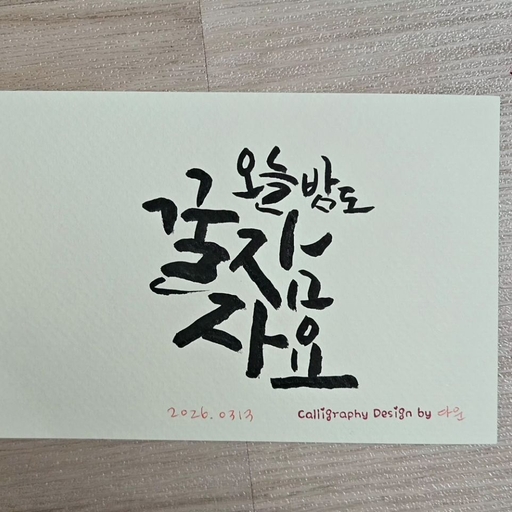 오늘밤도
꿀잠
자요
2026.0313
Calligraphy Design by 아원